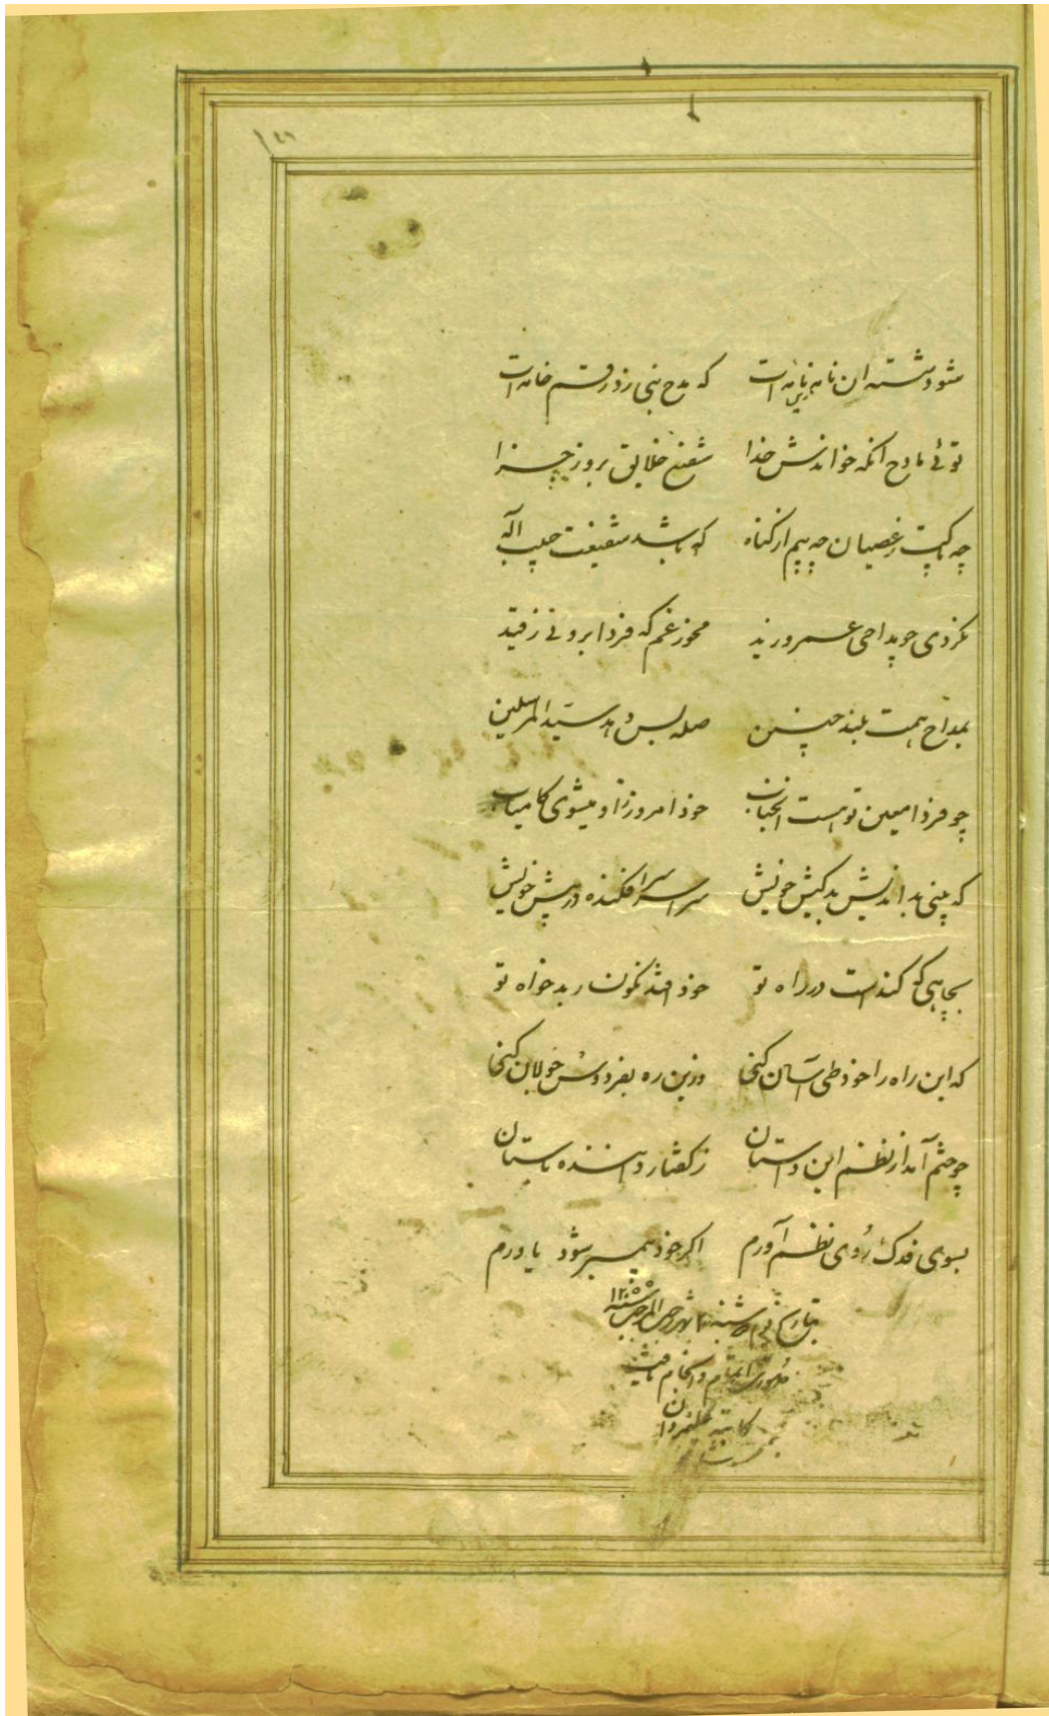 شود شسته ان نامه زین نامه است که مدح نبی زد رقم خامه است
توئی مادح انکه خواندش خدا شفیع خلایق بروز جزا
چه باکت ز عصیان چه بیم از کناه که باشد شفیعت حبیب اله
بکردی چو مداحی عمرو زید مخور غم که فردا برونی ز قید
بمداح همت بلند چنین صله بس دهد سیدالمرسلین
چو فردا معین تو هست انجناب خود امروز ازو میشوی کامیاب
که بینی بداندیش بدکیش خویش سراسر سرافکنده در پیش خویش
بچاهی که کنداست در راه تو خود افتد نکونسار بدخواه تو
که این راه را خود طی آسان کنی وزین ره بفردوس جولان کنی
چو ختم آمد از نظم این داستان ز کفتار داننده باستان
بسوی فدک روی نظم آورم اکر خود پیمبر شود یاورم
بتاریخ شنبه شهر رجب المرجب سنه ۱۲۵۵
صورت اتمام و انجام یافت
کاتبه